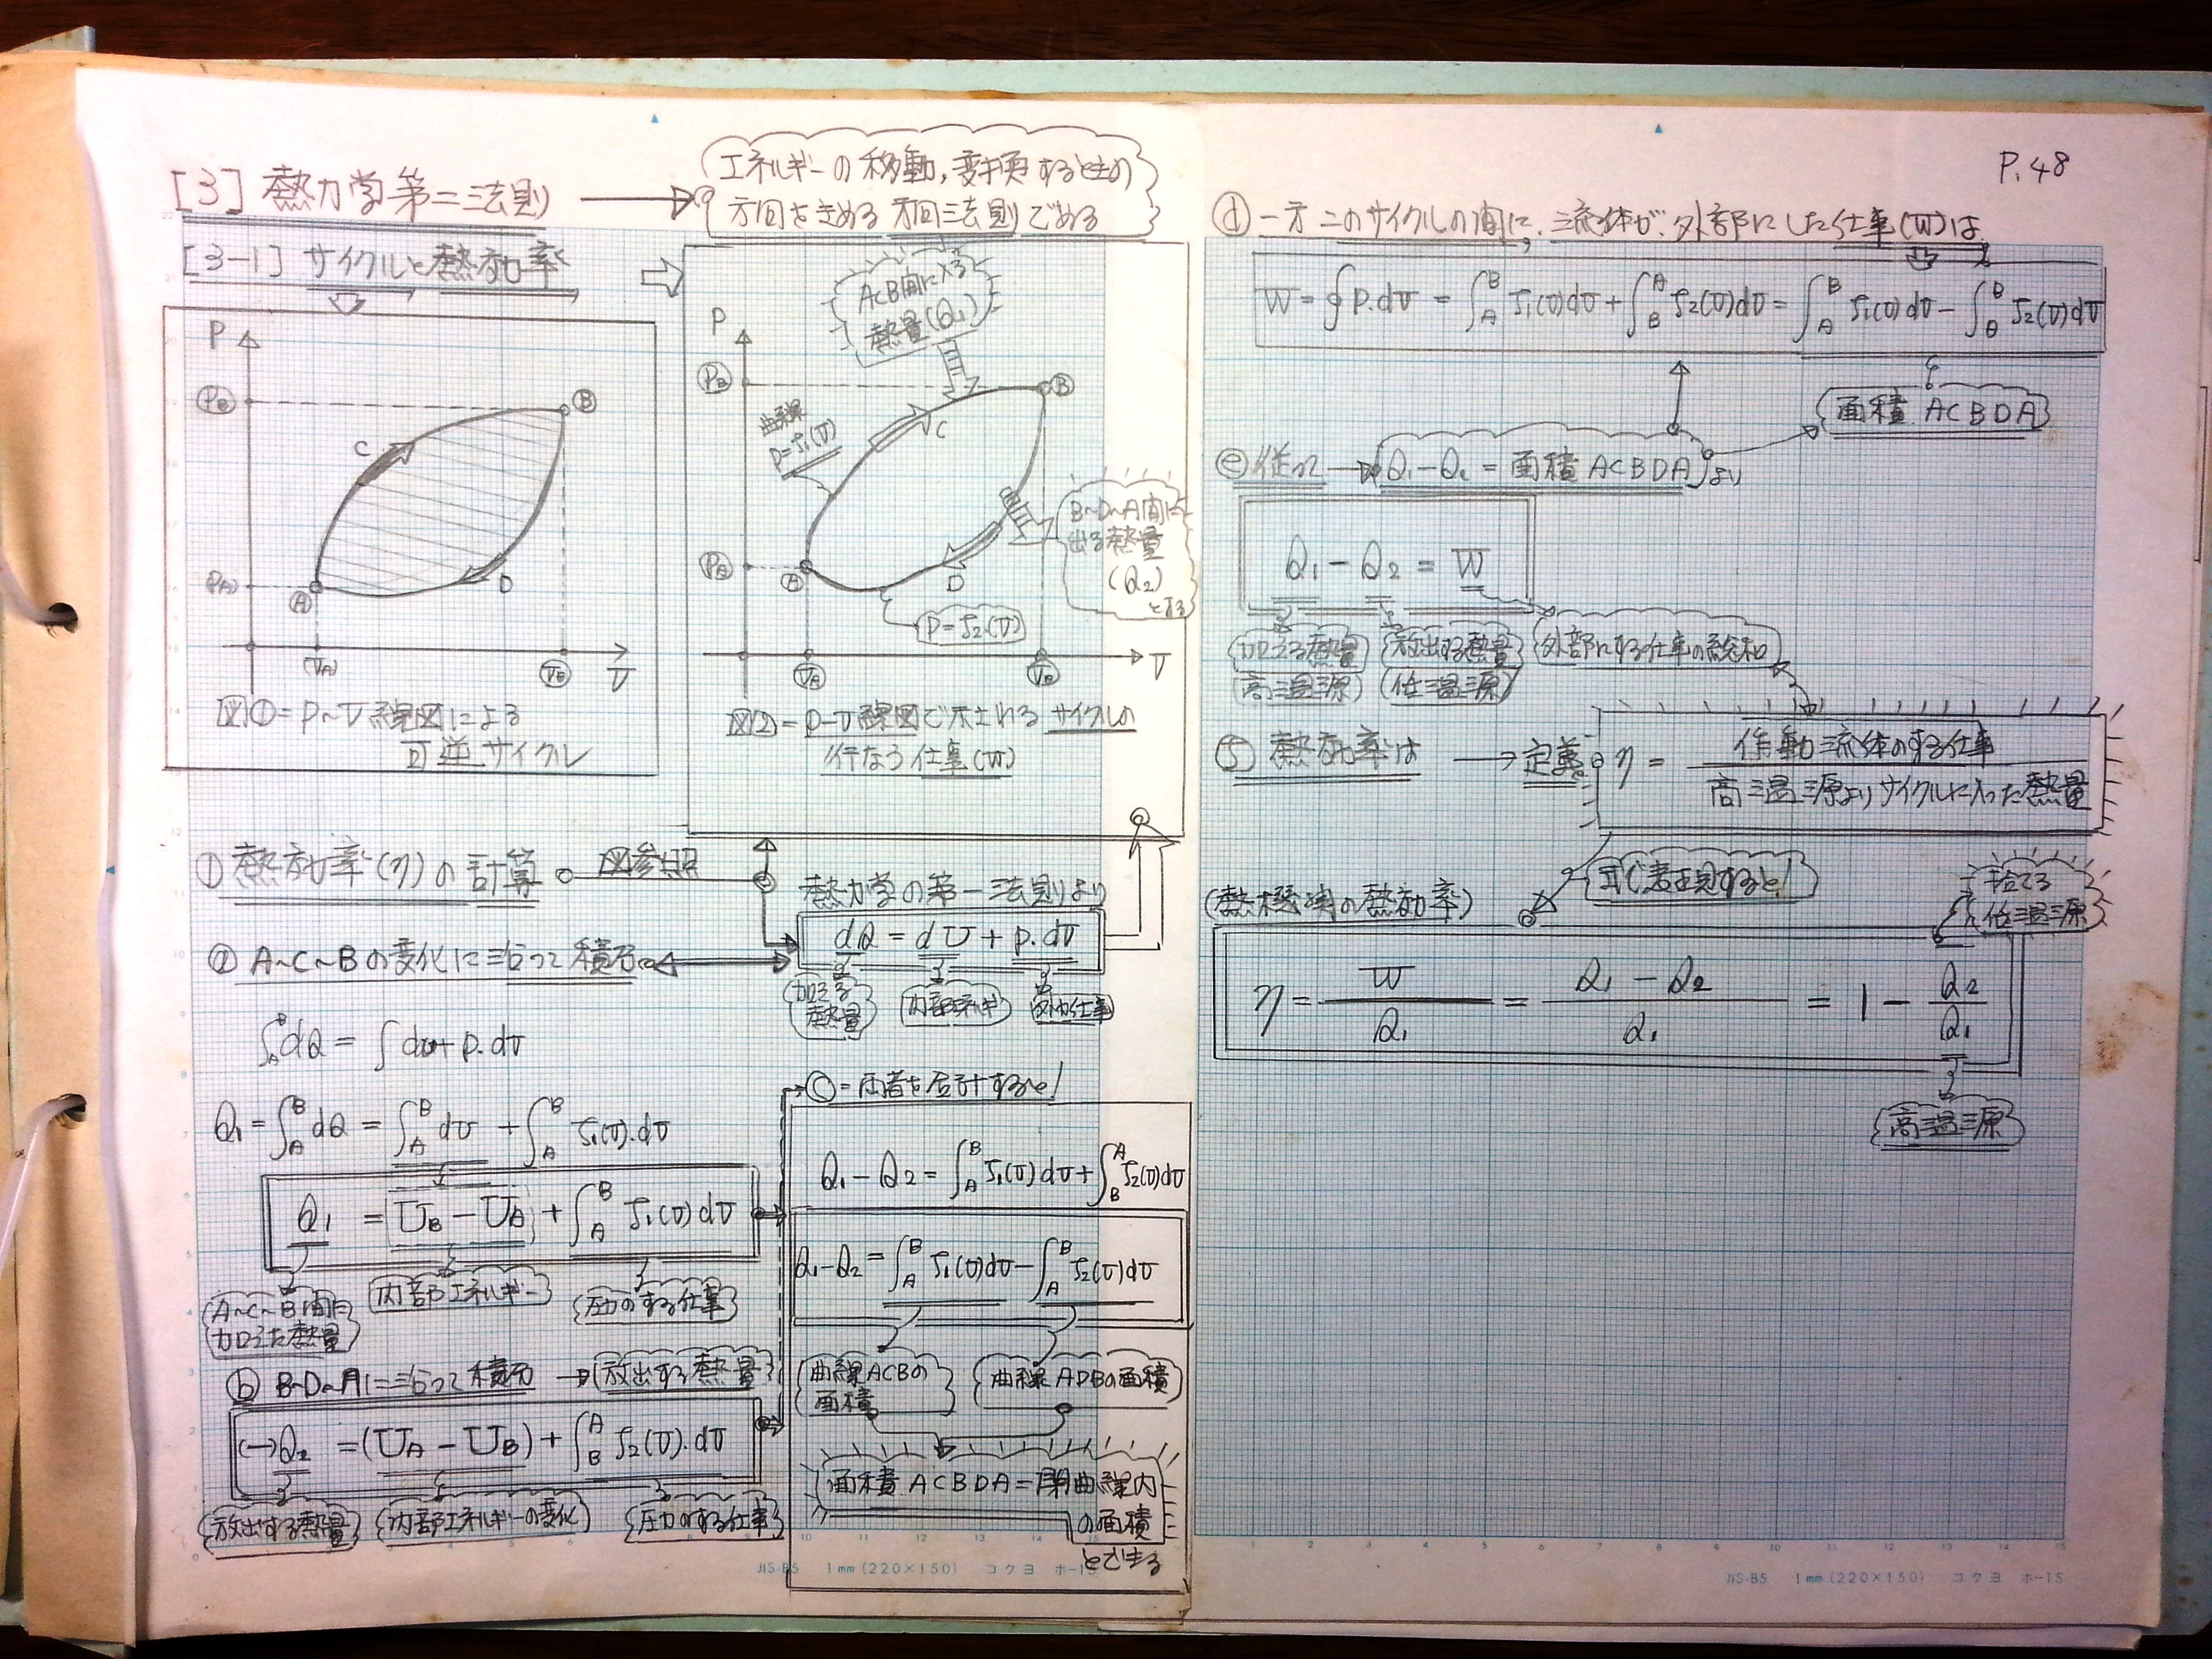 P.48
[3] 熱力学第二法則
エネルギーの移動,変換するときの
方向をきめる方向法則である
[3-1] サイクルと熱効率
P
PB
B
C
A
PA
D
VA
VB
V
図① = P~V線図による
可逆サイクル
ACB間に入る
熱量(Q1)
P
PB
B
曲線
P=f1(V)
C
B~D~A間に
出る熱量
(Q2)
とする
PA
A
D
P=f2(V)
VA
VB
V
図② = P-V線図で示される サイクルの
行なう仕事(W)
① 熱効率(η)の計算
図参照
熱力学の第一法則より
dQ = dU + p.dV
加える
熱量
外部仕事
ⓐ A~C~Bの変化に沿って積分
∫AB dQ = ∫ dU + p.dV
Q1 = ∫AB dQ = ∫AB dU + ∫AB f1(V).dV
Q1 = UB − UA + ∫AB f1(V) dV
A~C~B間に
加えた熱量
内部エネルギー
圧力のする仕事
ⓑ B~D~Aに沿って積分 → 放出する熱量
(−)Q2 = (UA − UB) + ∫BA f2(V).dV
放出する熱量
内部エネルギーの変化
圧力のする仕事
ⓒ = 両者を合計すると!
Q1 − Q2 = ∫AB f1(V)dV + ∫BA f2(V)dV
Q1−Q2 = ∫AB f1(V)dV − ∫AB f2(V)dV
曲線ACBの
面積
曲線ADBの面積
面積 ACBDA = 閉曲線内
の面積
とできる
JIS-B5 1mm(220×150) コクヨ ホ-15
ⓓ 一方このサイクルの間に,流体が,外部にした仕事(W)は,
W = ∮ P.dV = ∫AB f1(V)dV + ∫BA f2(V)dV = ∫AB f1(V)dV − ∫AB f2(V)dV
面積 ACBDA
ⓔ 従って → Q1−Q2 = 面積 ACBDA より
Q1 − Q2 = W
加える熱量
(高温源)
放出する熱量
(低温源)
外部にする仕事の総和
熱効率は → 定義
η = 作動流体のする仕事
高温源よりサイクルに入った熱量
式で表現すると!
(熱機関の熱効率)
捨てる
低温源
η = W/Q1 = Q1 − Q2/Q1 = 1 − Q2/Q1
高温源
JIS-B5 1mm(220×150) コクヨ ホ-15